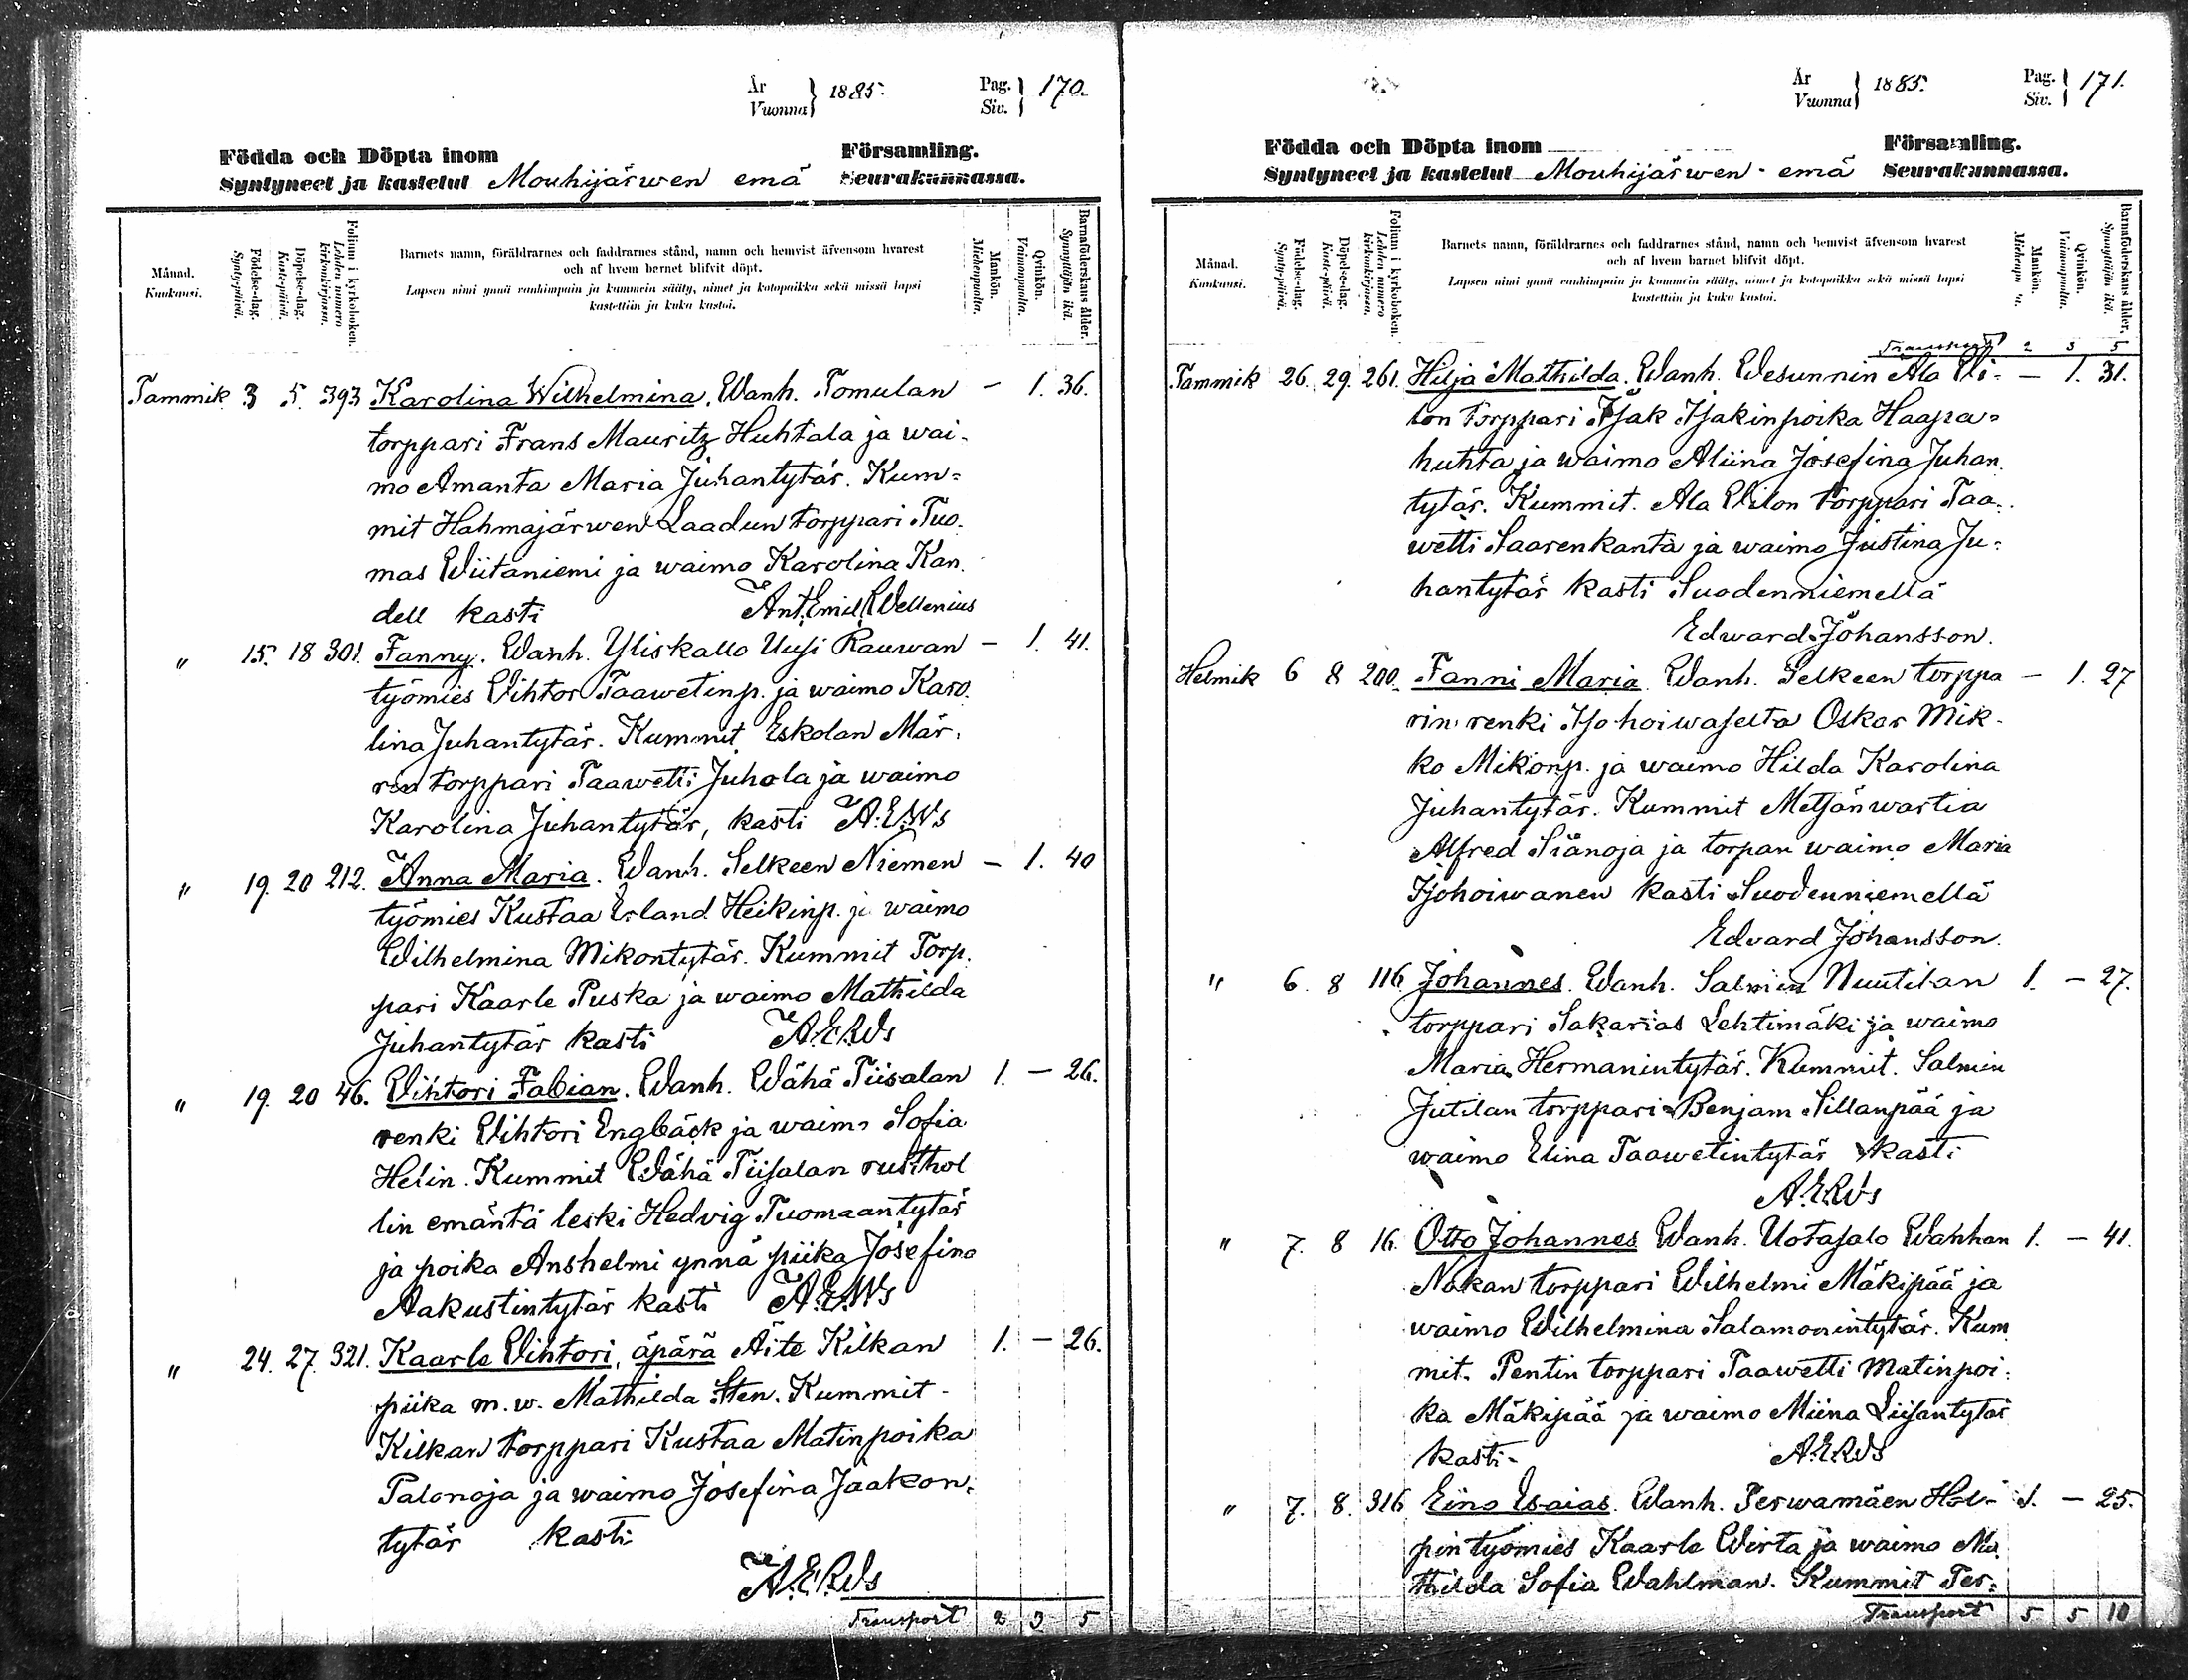 År
Vuonna } 1885. Pag.
Siv. } 170.
Födda och Döpta inom Församling.
Syntyneet ja kastetut Mouhijärwen emä Seurakunnassa.
Månad.
Kuukausi.
Födelse-dag.
Synty-päivä.
Döpelse-dag.
Kaste-päivä.
Folium i kyrkoboken.
Lehden numero
kirkonkirjassa.
Barnets namn, föräldrarnes och faddrarnes stånd, namn och hemvist äfvensom hvarest
och af hvem bernet blifvit döpt.
Lapsen nimi ynnä vanhimpain ja kummein sääty, nimet ja kotopaikka sekä missä lapsi
kastettiin ja kuka kastoi.
Mankön.
Miehenpuolta.
Qvinkön.
Vaimonpuolta.
Barnaföderskans ålder.
Synnyttäjän ikä.
Tammik 3 5. 393 Karolina Wilhelmina. Wanh. Tomulan — 1. 36.
torppari Frans Mauritz Huhtala ja wai-
mo Amanta Maria Juhantytär. Kum=
mit Hahmajärwen Laadun torppari Tuo-
mas Wiitaniemi ja waimo Karolina Kan.
dell kasti Ant. Emil Wellenius
" 15. 18 301. Fanny. Wanh. Yliskallo Uusi Rauwan — 1. 41.
työmies Vihtor Taawetinp. ja waimo Karo.
lina Juhantytär. Kummit Eskolan Mär.
rin torppari Taawetti Juhola ja waimo
Karolina Juhantytär, kasti A.E.W:s
" 19. 20 212. Anna Maria. Wanh. Selkeen Niemen — 1. 40
työmies Kustaa Erland Heikinp. ja waimo
Wilhelmina Mikontytär. Kummit Torp.
pari Kaarle Puska ja waimo Mathilda
Juhantytär kasti A.E.W:s
" 19. 20 46. Vihtori Fabian. Wanh. Wähä Tiisalan 1. — 26.
renki Vihtori Engbäck ja waimo Sofia
Helin. Kummit Wähä Tiisalan rusthol
lin emäntä leski Hedvig Tuomaantytär
ja poika Anshelmi ynnä piika Josefina
Aakustintytär kasti A.E.W:s
" 24. 27. 321. Kaarle Vihtori, äpärä Äite Kilkan 1. — 26.
piika m. w. Mathilda Sten. Kummit -
Kilkan torppari Kustaa Matinpoika
Palonoja ja waimo Josefina Jaakon-
tytär kasti
A.E.W:s
Transport 2 3 5
År
Vuonna } 1885. Pag.
Siv. } 171.
Födda och Döpta inom Församling.
Syntyneet ja kastetut Mouhijärwen - emä Seurakunnassa.
Månad.
Kuukausi.
Födelse-dag.
Synty-päivä.
Döpelse-dag.
Kaste-päivä.
Folium i kyrkoboken.
Lehden numero
kirkonkirjassa.
Barnets namn, föräldrarnes och faddrarnes stånd, namn och hemvist äfvensom hvarest
och af hvem barnet blifvit döpt.
Lapsen nimi ynnä vanhimpain ja kummein sääty, nimet ja kotopaikka sekä missä lapsi
kastettiin ja kuka kastoi.
Mankön.
Qvinkön.
Vaimonpuolta.
Barnaföderskans ålder.
Synnyttäjän ikä.
Transport 2 3 5
Tammik 26. 29. 261. Hilja Mathilda. Wanh. Wesunnin Ala Wi- — 1. 31.
lon torppari Isak Isakinpoika Haapa=
huhta ja waimo Aliina Josefina Juhan
tytär. Kummit. Ala Wilon torppari Taa-
wetti Saarenkanta ja waimo Justina Ju-
hantytär kasti Suodenniemellä
Edward Johansson.
Helmik 6 8 200. Fanni Maria Wanh. Selkeen torppa — 1. 27
rin renki Isohoiwaselta Oskar Mik-
ko Mikonp. ja waimo Hilda Karolina
Juhantytär. Kummit Metsänwartia
Alfred Sianoja ja torpan waimo Maria
Isohoiwanen kasti Suodenniemellä
Edvard Johansson.
" 6. 8 116 Johannes. Wanh. Salmin Nuutilan 1. — 27.
torppari Sakarias Lehtimäki ja waimo
Maria Hermanintytär. Kummit. Salmin
Jutilan torppari Benjam Sillanpää ja
waimo Elina Taawetintytär kasti
A.E.W:s
" 7. 8 16. Otto Johannes Wanh. Uotasalo Wanhan 1. — 41.
Nokan torppari Wilhelmi Mäkipää ja
waimo Wilhelmina Salamonintytär. Kum
mit. Pentin torppari Taawetti Matinpoi-
ka Mäkipää ja waimo Miina Liisantytär
kasti- A.E.W:s
" 7. 8. 316 Eino Esaias. Wanh. Terwamäen Hol- 1. — 25.
pin työmies Kaarle Wirta ja waimo Ma
thilda Sofia Wahlman. Kummit Ter-
Transport 5 5 10